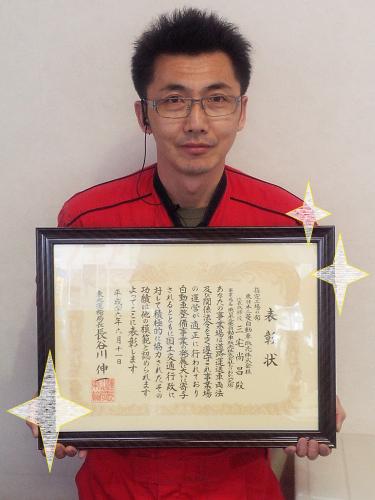 表彰状
指定工場の部
東日本三菱自動車販売株式会社
三宅尚昌殿
あなたの事業場は道路運送車両法
及び関係法令をよく遵守され事業場
の運営が適正に行われており
自動車整備事業の発展に大いに寄与
されるとともに国土交通行政に
対して積極的に協力されたその
功績は他の模範と認められます
よってここに表彰します
平成二十六年六月十一日
東北運輸局長 長谷川伸一